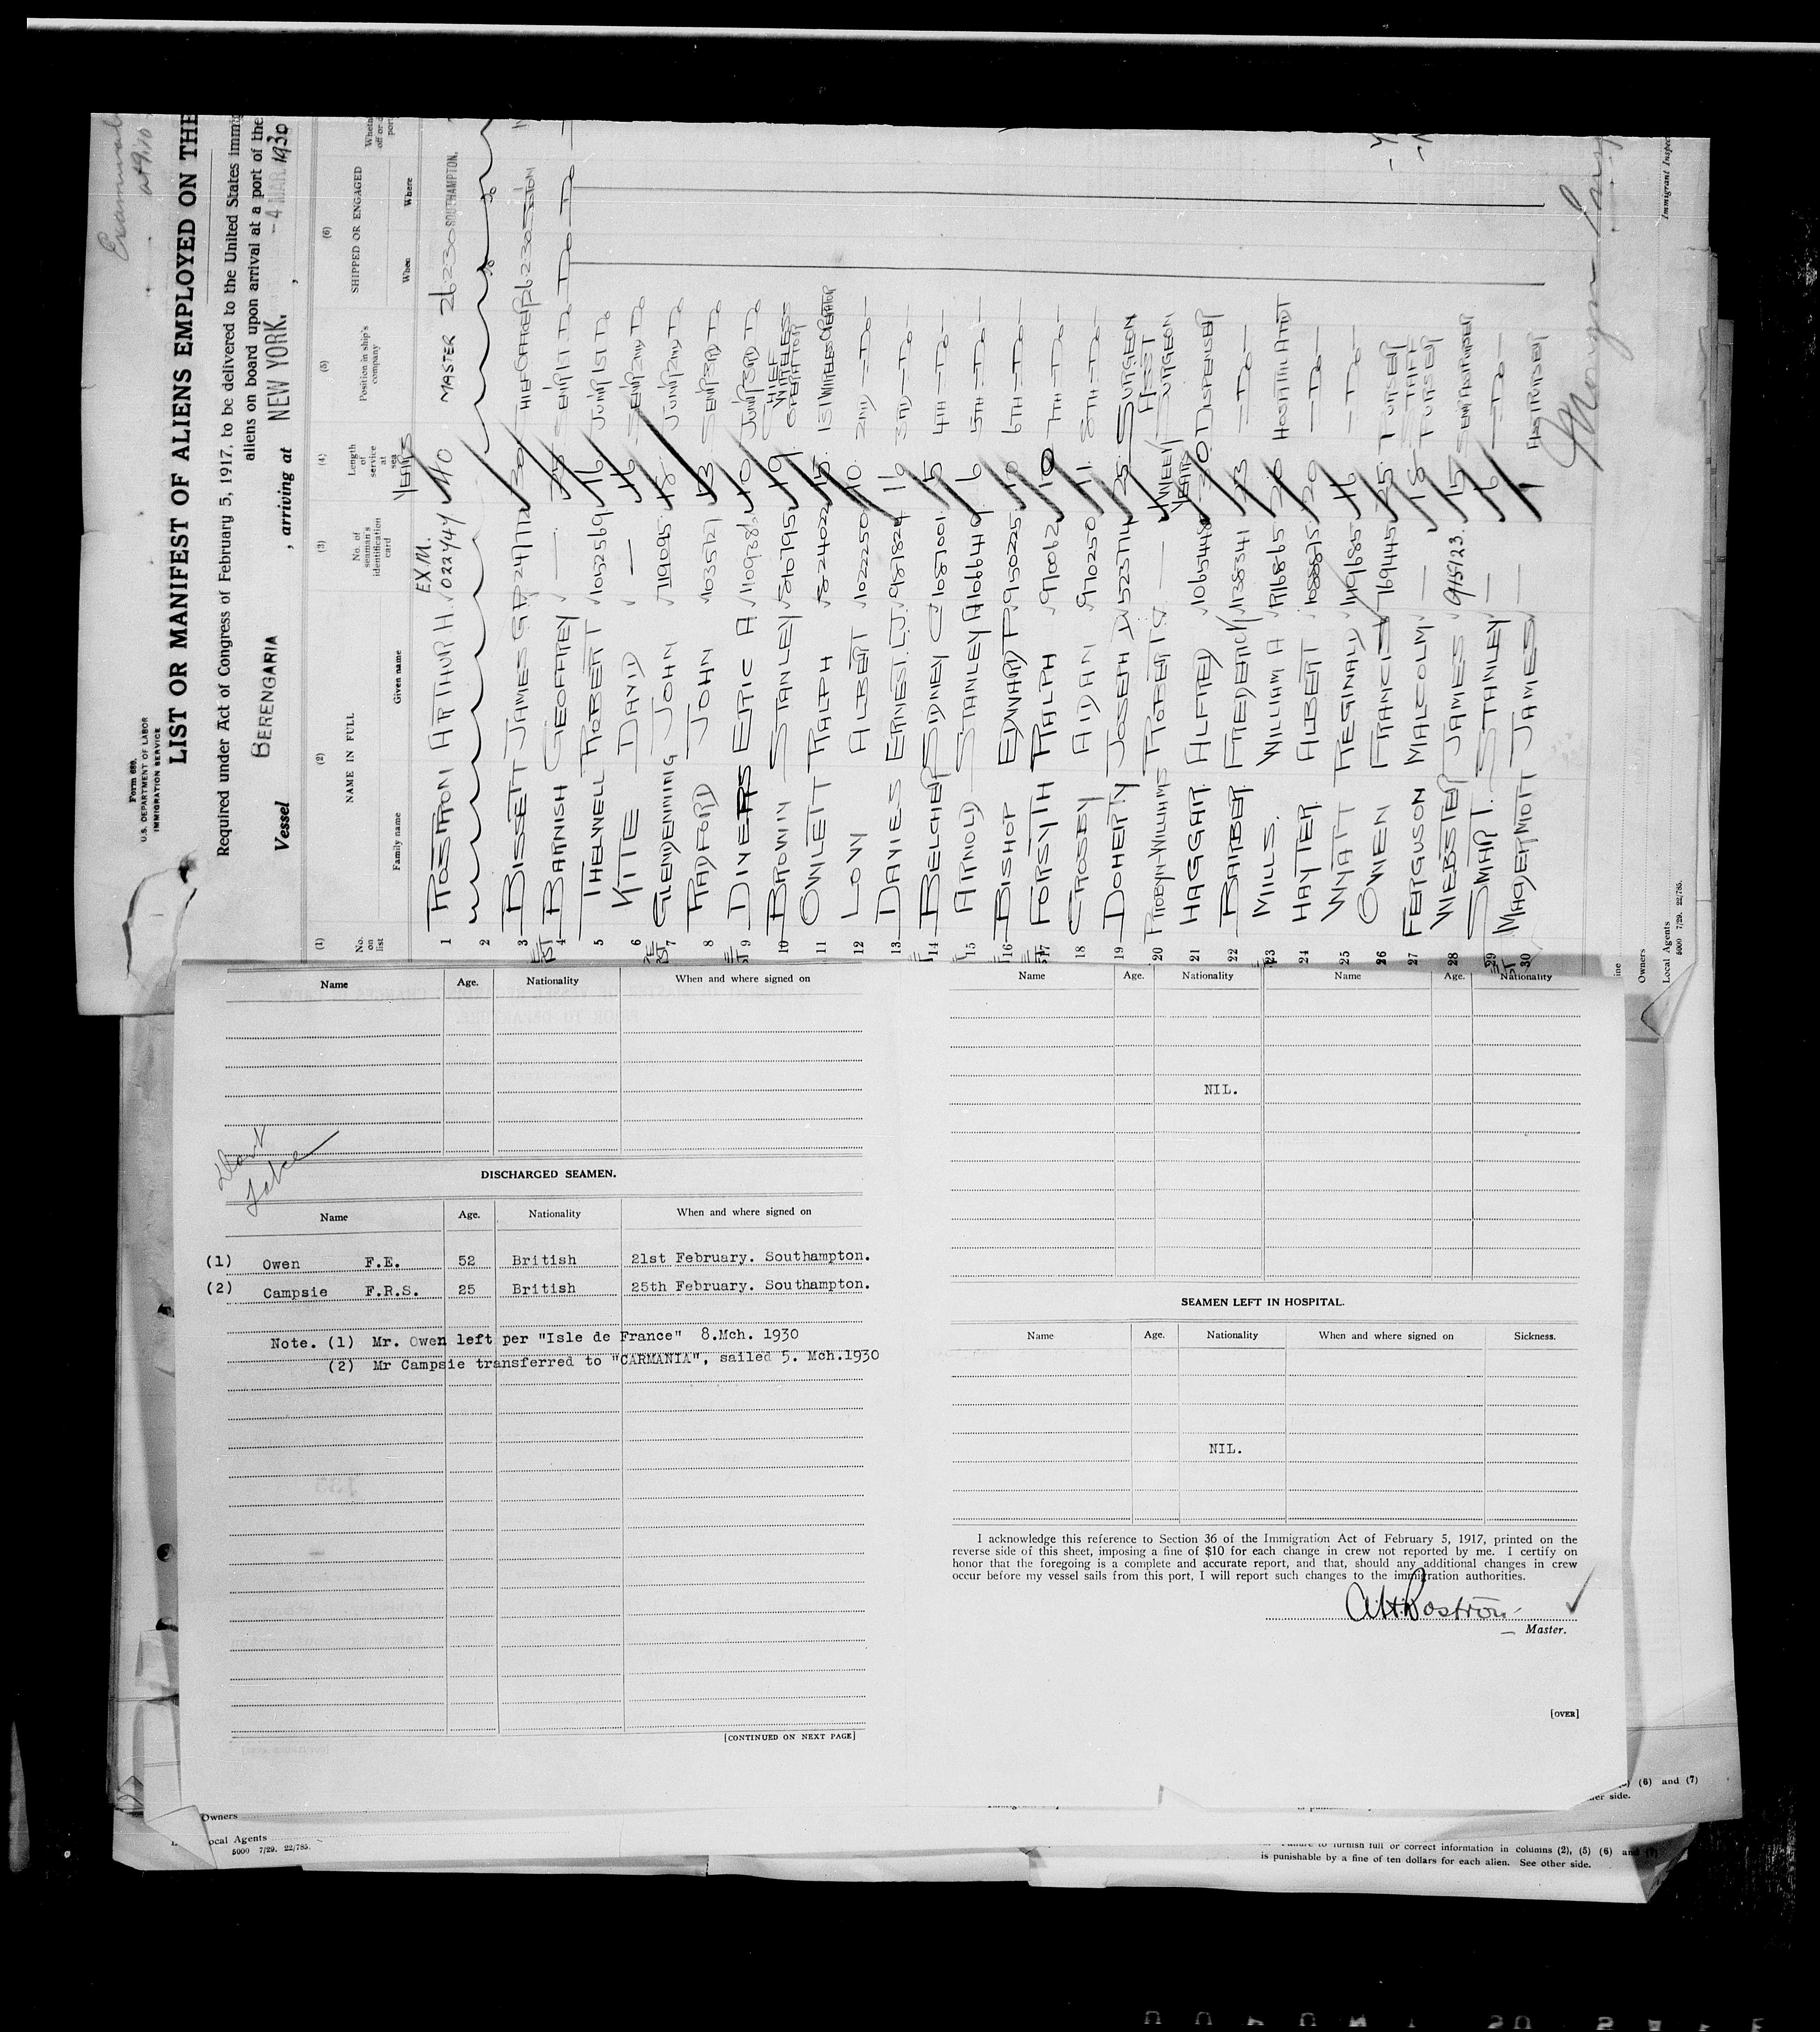 Form 689.
U.S. DEPARTMENT OF LABOR
IMMIGRATION SERVICE
LIST OR MANIFEST OF ALIENS EMPLOYED ON THE
Required under Act of Congress of February 5, 1917, to be delivered to the United States immig
aliens on board upon arrival at a port of the
Vessel BERENGARIA , arriving at NEW YORK. -4 MAR 1930 ,
(1) (2) (3) (4) (5) (6)
No. on list NAME IN FULL Family name Given name No. of seaman's identification card Length of service at sea YEARS Position in ship's company SHIPPED OR ENGAGED When Where
EXM.
1 ROSTRON ARTHUR H. 022447 40 MASTER 26 2 30 SOUTHAMPTON.
2
3 BISSETT JAMES G.P. 247172 30 CHIEF OFFICER 26 2 30 SOTON
4 BARNISH GEOFFREY — SENR 1ST DO DO DO
5 THELWELL ROBERT 1052569 16 JUNR 1ST DO
6 KITTE DAVID — 16 SENR 2ND DO
7 GLENDENNING JOHN 719095 JUNR 2ND DO
8 RADFORD JOHN 1035727 13 SENR 3RD DO
9 DIVERS ERIC A. 1109386 10 JUNR 3RD DO
10 BROWN STANLEY 576795 19 CHIEF WIRELESS OPERATOR
11 OWLETT RALPH 582402 15 1ST WIRELESS OPERATOR
12 LOW ALBERT 1022250 10 2ND —DO—
13 DAVIES ERNEST. J. 987824 11 3RD —DO—
14 BELCHER SIDNEY C 1087001 5 4TH —DO—
15 ARNOLD STANLEY A 1066419 6 5TH —DO—
16 BISHOP EDWARD P 950225 10 6TH —DO—
17 FORSYTH RALPH 970062 10 7TH —DO—
18 CROSBY AIDAN 970250 11 8TH —DO—
19 DOHERTY JOSEPH W 523714 25 SURGEON
20 ROBYN-WILLIAMS ROBERT G. — ASST SURGEON
21 HAGGAR ALFRED 1065448 30 DISPENSER
22 BARBER FREDERICK 1138341 23 —DO—
23 MILLS. WILLIAM A 716865 20 HOSPITAL ATTDT
24 HAYTER. ALBERT 1038875 20 —DO—
25 WYATT REGINALD 1149685 16 —DO—
26 OWEN FRANCIS E 769445 25 PURSER
27 FERGUSON MALCOLM — 18 STAFF PURSER
28 WEBSTER JAMES 915123. 15 SENR ASST PURSER
29 SMART. STANLEY — 6 —DO—
30 MAGERMOTT JAMES — 1 ASST PURSER
Immigrant Inspec
Owners
Local Agents
5000 7/29. 22/785.
Name Age. Nationality When and where signed on
DISCHARGED SEAMEN.
Name Age. Nationality When and where signed on
(1) Owen F.E. 52 British 21st February. Southampton.
(2) Campsie F.R.S. 25 British 25th February. Southampton.
Note. (1) Mr. Owen left per "Isle de France" 8.Mch. 1930
(2) Mr Campsie transferred to "CARMANIA", sailed 5. Mch.1930
[CONTINUED ON NEXT PAGE]
Name Age. Nationality Name Age. Nationality
NIL.
SEAMEN LEFT IN HOSPITAL.
Name Age. Nationality When and where signed on Sickness.
NIL.
I acknowledge this reference to Section 36 of the Immigration Act of February 5, 1917, printed on the
reverse side of this sheet, imposing a fine of $10 for each change in crew not reported by me. I certify on
honor that the foregoing is a complete and accurate report, and that, should any additional changes in crew
occur before my vessel sails from this port, I will report such changes to the immigration authorities.
A.H.Rostron
Master.
[OVER]
(6) and (7)
er side.
Owners
ocal Agents
5000 7/29. 22/785.
to furnish full or correct information in columns (2), (5) (6) and (7)
is punishable by a fine of ten dollars for each alien. See other side.